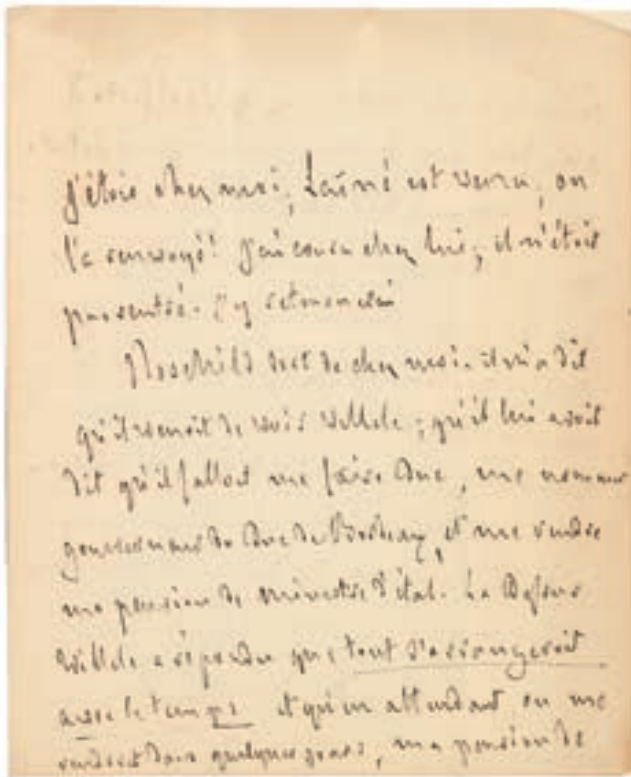 j'étois chez moi, Lainé est venu, on
l'a renvoyé! J'ai couru chez lui; il n'étoit
pas rentré. J'y retournerai
Roschild sort de chez moi. il m'a dit
qu'il venoit de voir Villele; qu'il lui avoit
dit qu'il falloit me faire Duc, me nommer
gouverneur du Duc de Bordeaux, et me rendre
ma pension de ministre d'état. Le
Villele a répondu que tout s'arrangeroit
avec le temps et qu'en attendant on me
rendroit dans quelques jours, ma pension de